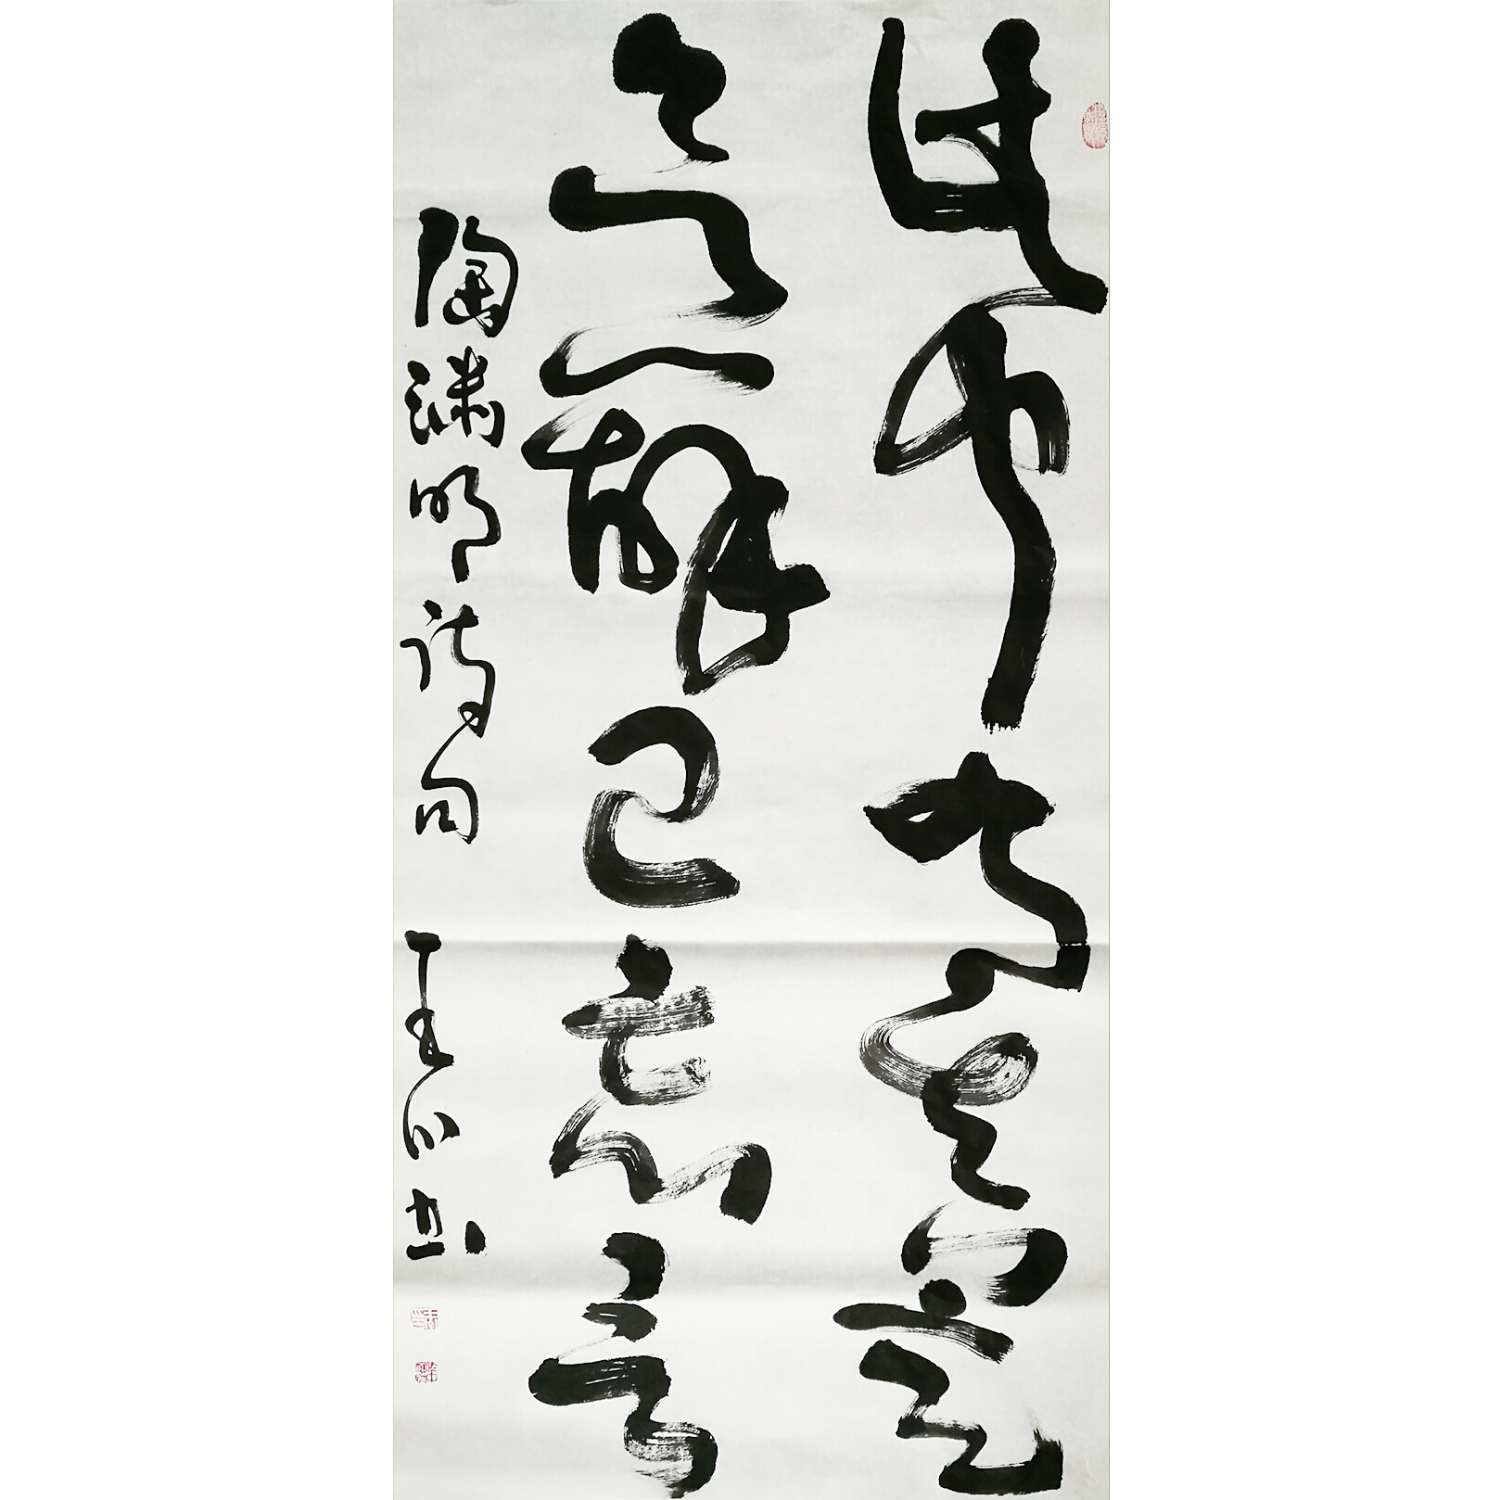 此中有真意
欲辩已忘言
陶渊明诗句 王
书